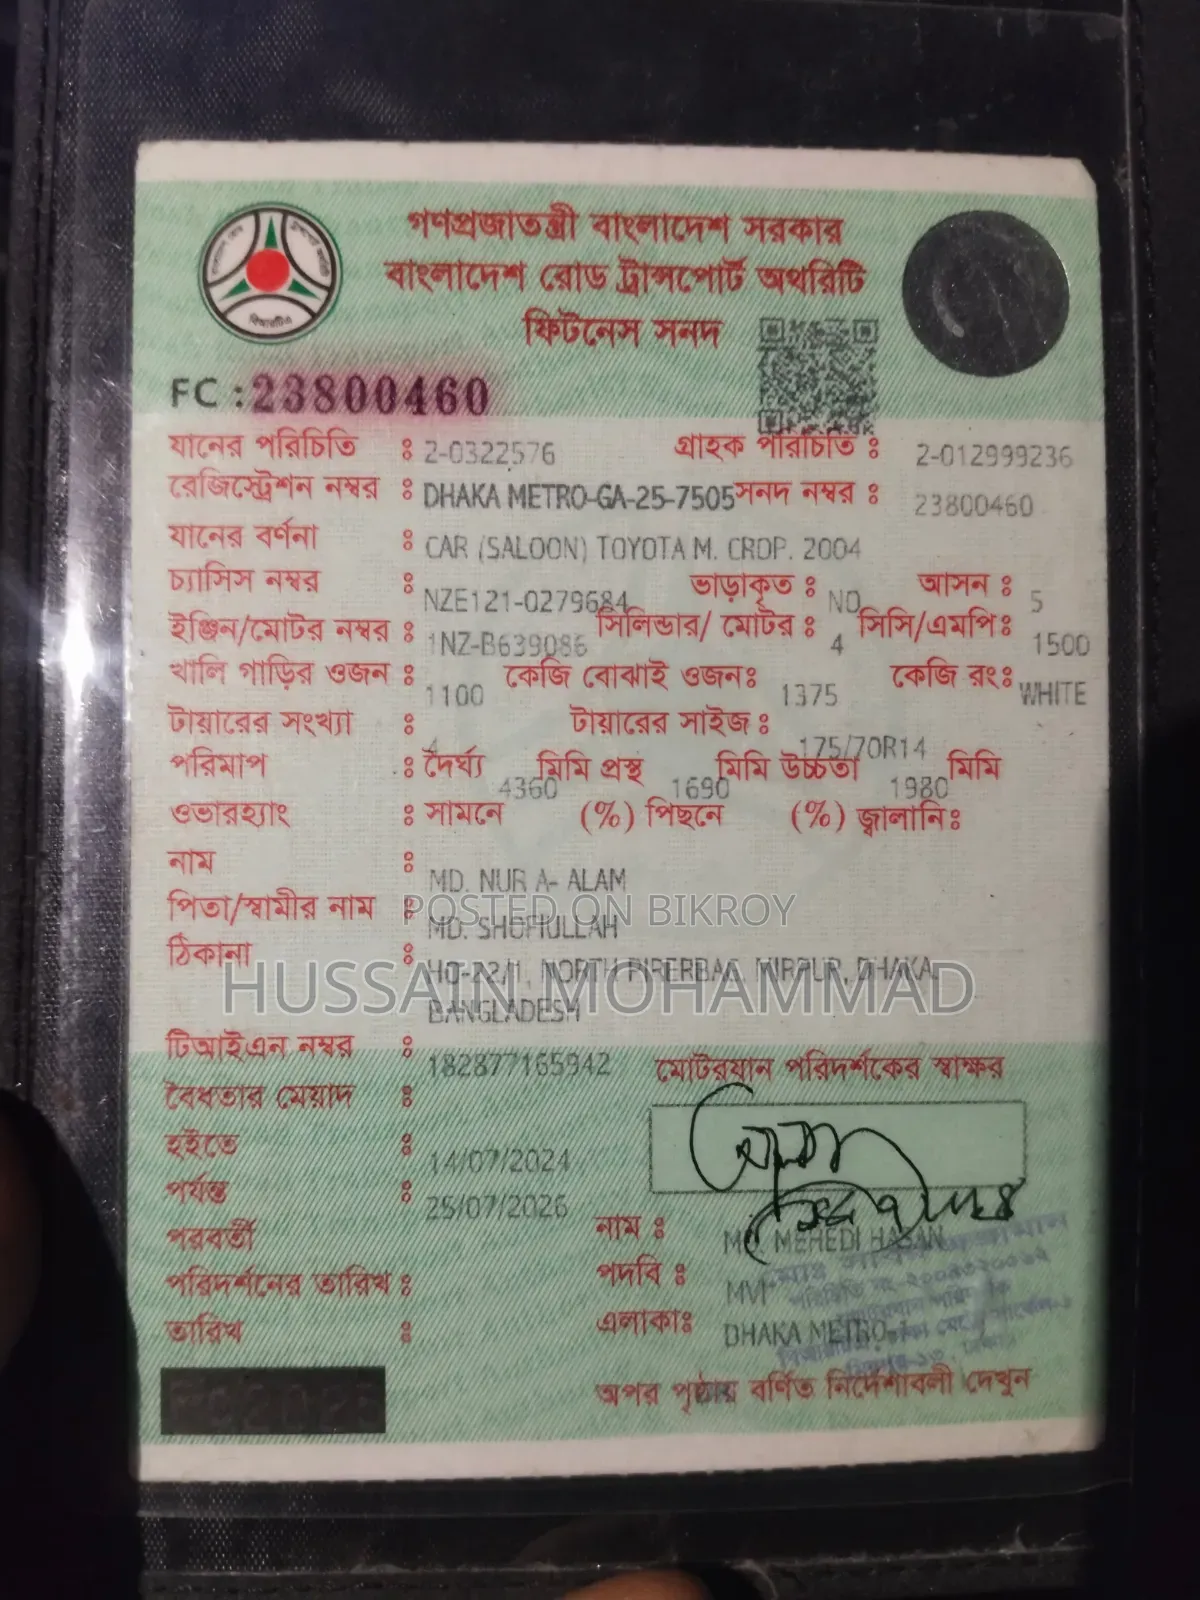 গণপ্রজাতন্ত্রী বাংলাদেশ সরকার
বাংলাদেশ রোড ট্রান্সপোর্ট অথরিটি
ফিটনেস সনদ
FC : 23800460
যানের পরিচিতি : 2-0322576 গ্রাহক পরিচিতি : 2-012999236
রেজিস্ট্রেশন নম্বর : DHAKA METRO-GA-25-7505 সনদ নম্বর : 23800460
যানের বর্ণনা : CAR (SALOON) TOYOTA M. CROP. 2004
চ্যাসিস নম্বর : NZE121-0279684 ভাড়াকৃত : NO আসন : 5
ইঞ্জিন/মোটর নম্বর : 1NZ-B639086 সিলিন্ডার/ মোটর : 4 সিসি/এমপি: 1500
খালি গাড়ির ওজন : 1100 কেজি বোঝাই ওজন: 1375 কেজি রং: WHITE
টায়ারের সংখ্যা : 4 টায়ারের সাইজ : 175/70R14
পরিমাপ : দৈর্ঘ্য 4360 মিমি প্রস্থ 1690 মিমি উচ্চতা 1980 মিমি
ওভারহ্যাং : সামনে (%) পিছনে (%) জ্বালানি:
নাম : MD. NUR A- ALAM
পিতা/স্বামীর নাম : MD. SHOFIULLAH
POSTED ON BIKROY
ঠিকানা : HO-22/1, NORTH PIRERBAG, MIRPUR, DHAKA,
HUSSAIN MOHAMMAD
BANGLADESH
টিআইএন নম্বর : 182877165942 মোটরযান পরিদর্শকের স্বাক্ষর
বৈধতার মেয়াদ :
হইতে : 14/07/2024
পর্যন্ত : 25/07/2026
পরবর্তী নাম : MD. MEHEDI HASAN
পরিদর্শনের তারিখ : পদবি : MVI
তারিখ : এলাকা: DHAKA METRO-1
অপর পৃষ্ঠায় বর্ণিত নির্দেশাবলী দেখুন